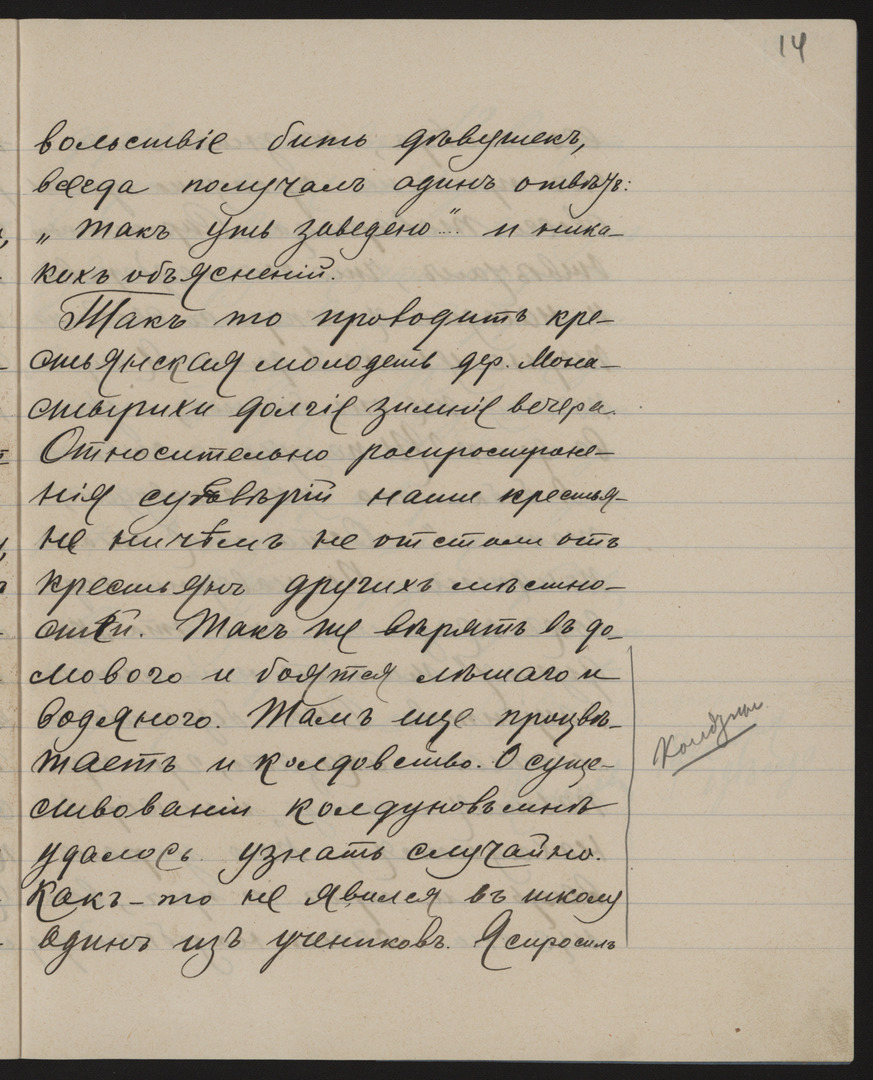 14
вольствіе бить дѣвушекъ,
всегда получалъ одинъ отвѣтъ:
„такъ ужъ заведено“... и ника-
кихъ объясненій.
Такъ то проводитъ кре-
стьянская молодежь дер. Мона-
стырихи долгіе зимніе вечера.
Относительно распростране-
нія суевѣрій наши крестья-
не ничѣмъ не отстали отъ
крестьянъ другихъ мѣстно-
стей. Такъ же вѣрятъ въ до-
мового и боятся лѣшаго и
водяного. Тамъ еще процвѣ-
таетъ и колдовство. О суще-
ствованіи колдуновъ мнѣ
удалось узнать случайно.
Какъ-то не явился въ школу
одинъ изъ учениковъ. Я спросилъ
Колдуны